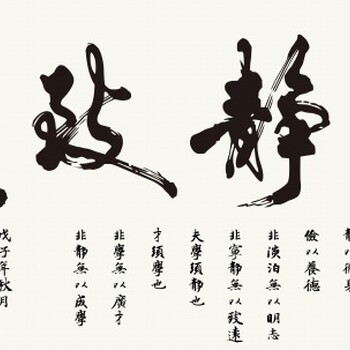 静致
静以修身
儉以養德
非淡泊無以明志
非寧靜無以致遠
夫學須靜也
才須學也
非學無以廣才
非靜無以成學
戊子年秋月